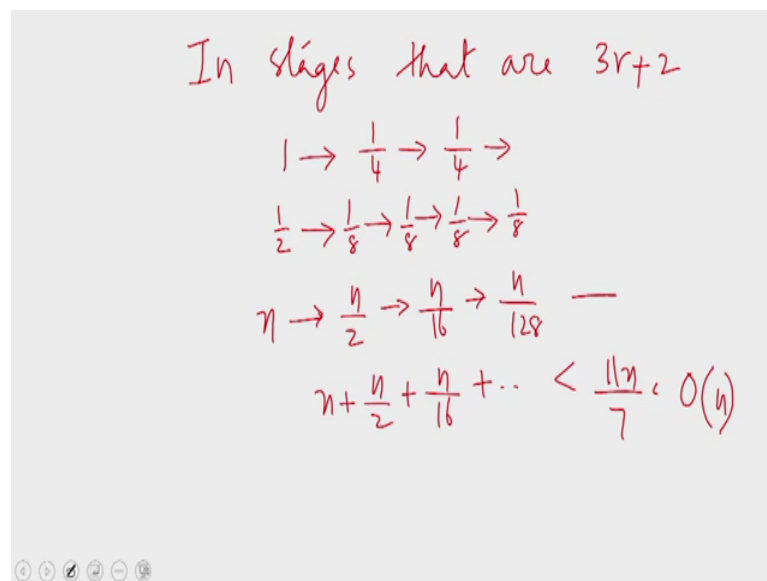 In stages that are 3r+2
1 → 1/4 → 1/4 →
1/2 → 1/8 → 1/8 → 1/8 → 1/8
n → n/2 → n/16 → n/128 —
n + n/2 + n/16 + .. < 11n/7 < O(n)